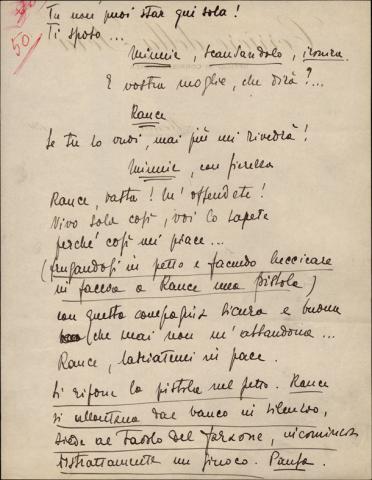 Tu non puoi star qui sola!
50
Ti sposo...
Minnie, scansandolo, ironica
E vostra moglie, che dirà?...
Rance
Se tu lo vuoi, mai più mi rivedrà!
Minnie, con fierezza
Rance, basta! M'offendete!
Vivo sola così, voi lo sapete
perché così mi piace...
(frugandosi in petto e facendo luccicare
in faccia a Rance una pistola)
con questa compagnia sicura e buona
(che mai non m'abbandona...
Rance, lasciatemi in pace.
Si ripone la pistola nel petto. Rance
si allontana dal banco in silenzio,
siede al tavolo del faraone, ricomincia
distrattamente un giuoco. Pausa.